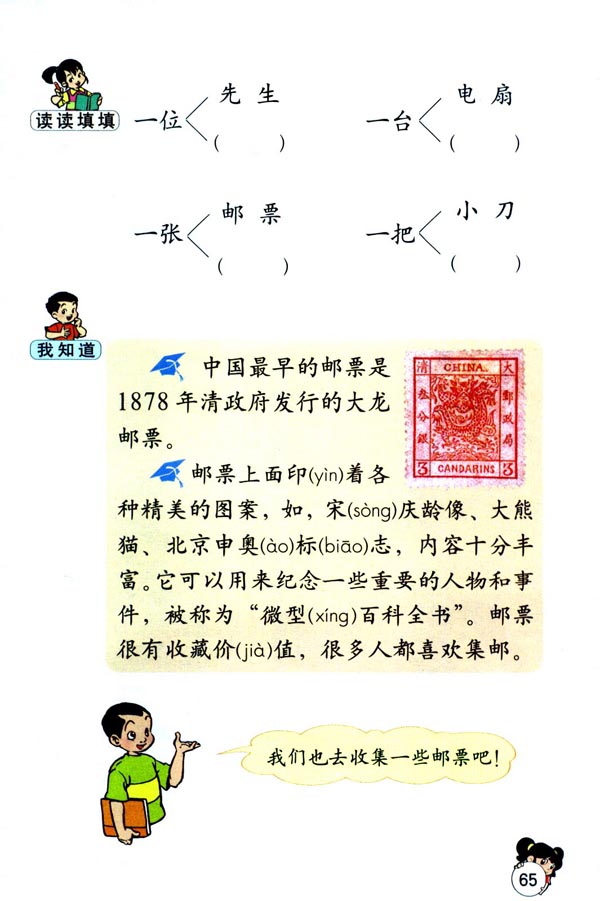 读读填填
一位 先生
( )
一台 电扇
( )
一张 邮票
( )
一把 小刀
( )
我知道
中国最早的邮票是
1878年清政府发行的大龙
邮票。
清 CHINA 大
叁分銀 郵政局
3 CANDARINS 3
邮票上面印(yìn)着各
种精美的图案，如，宋(sòng)庆龄像、大熊
猫、北京申奥(ào)标(biāo)志，内容十分丰
富。它可以用来纪念一些重要的人物和事
件，被称为“微型(xíng)百科全书”。邮票
很有收藏价(jià)值，很多人都喜欢集邮。
我们也去收集一些邮票吧！
65